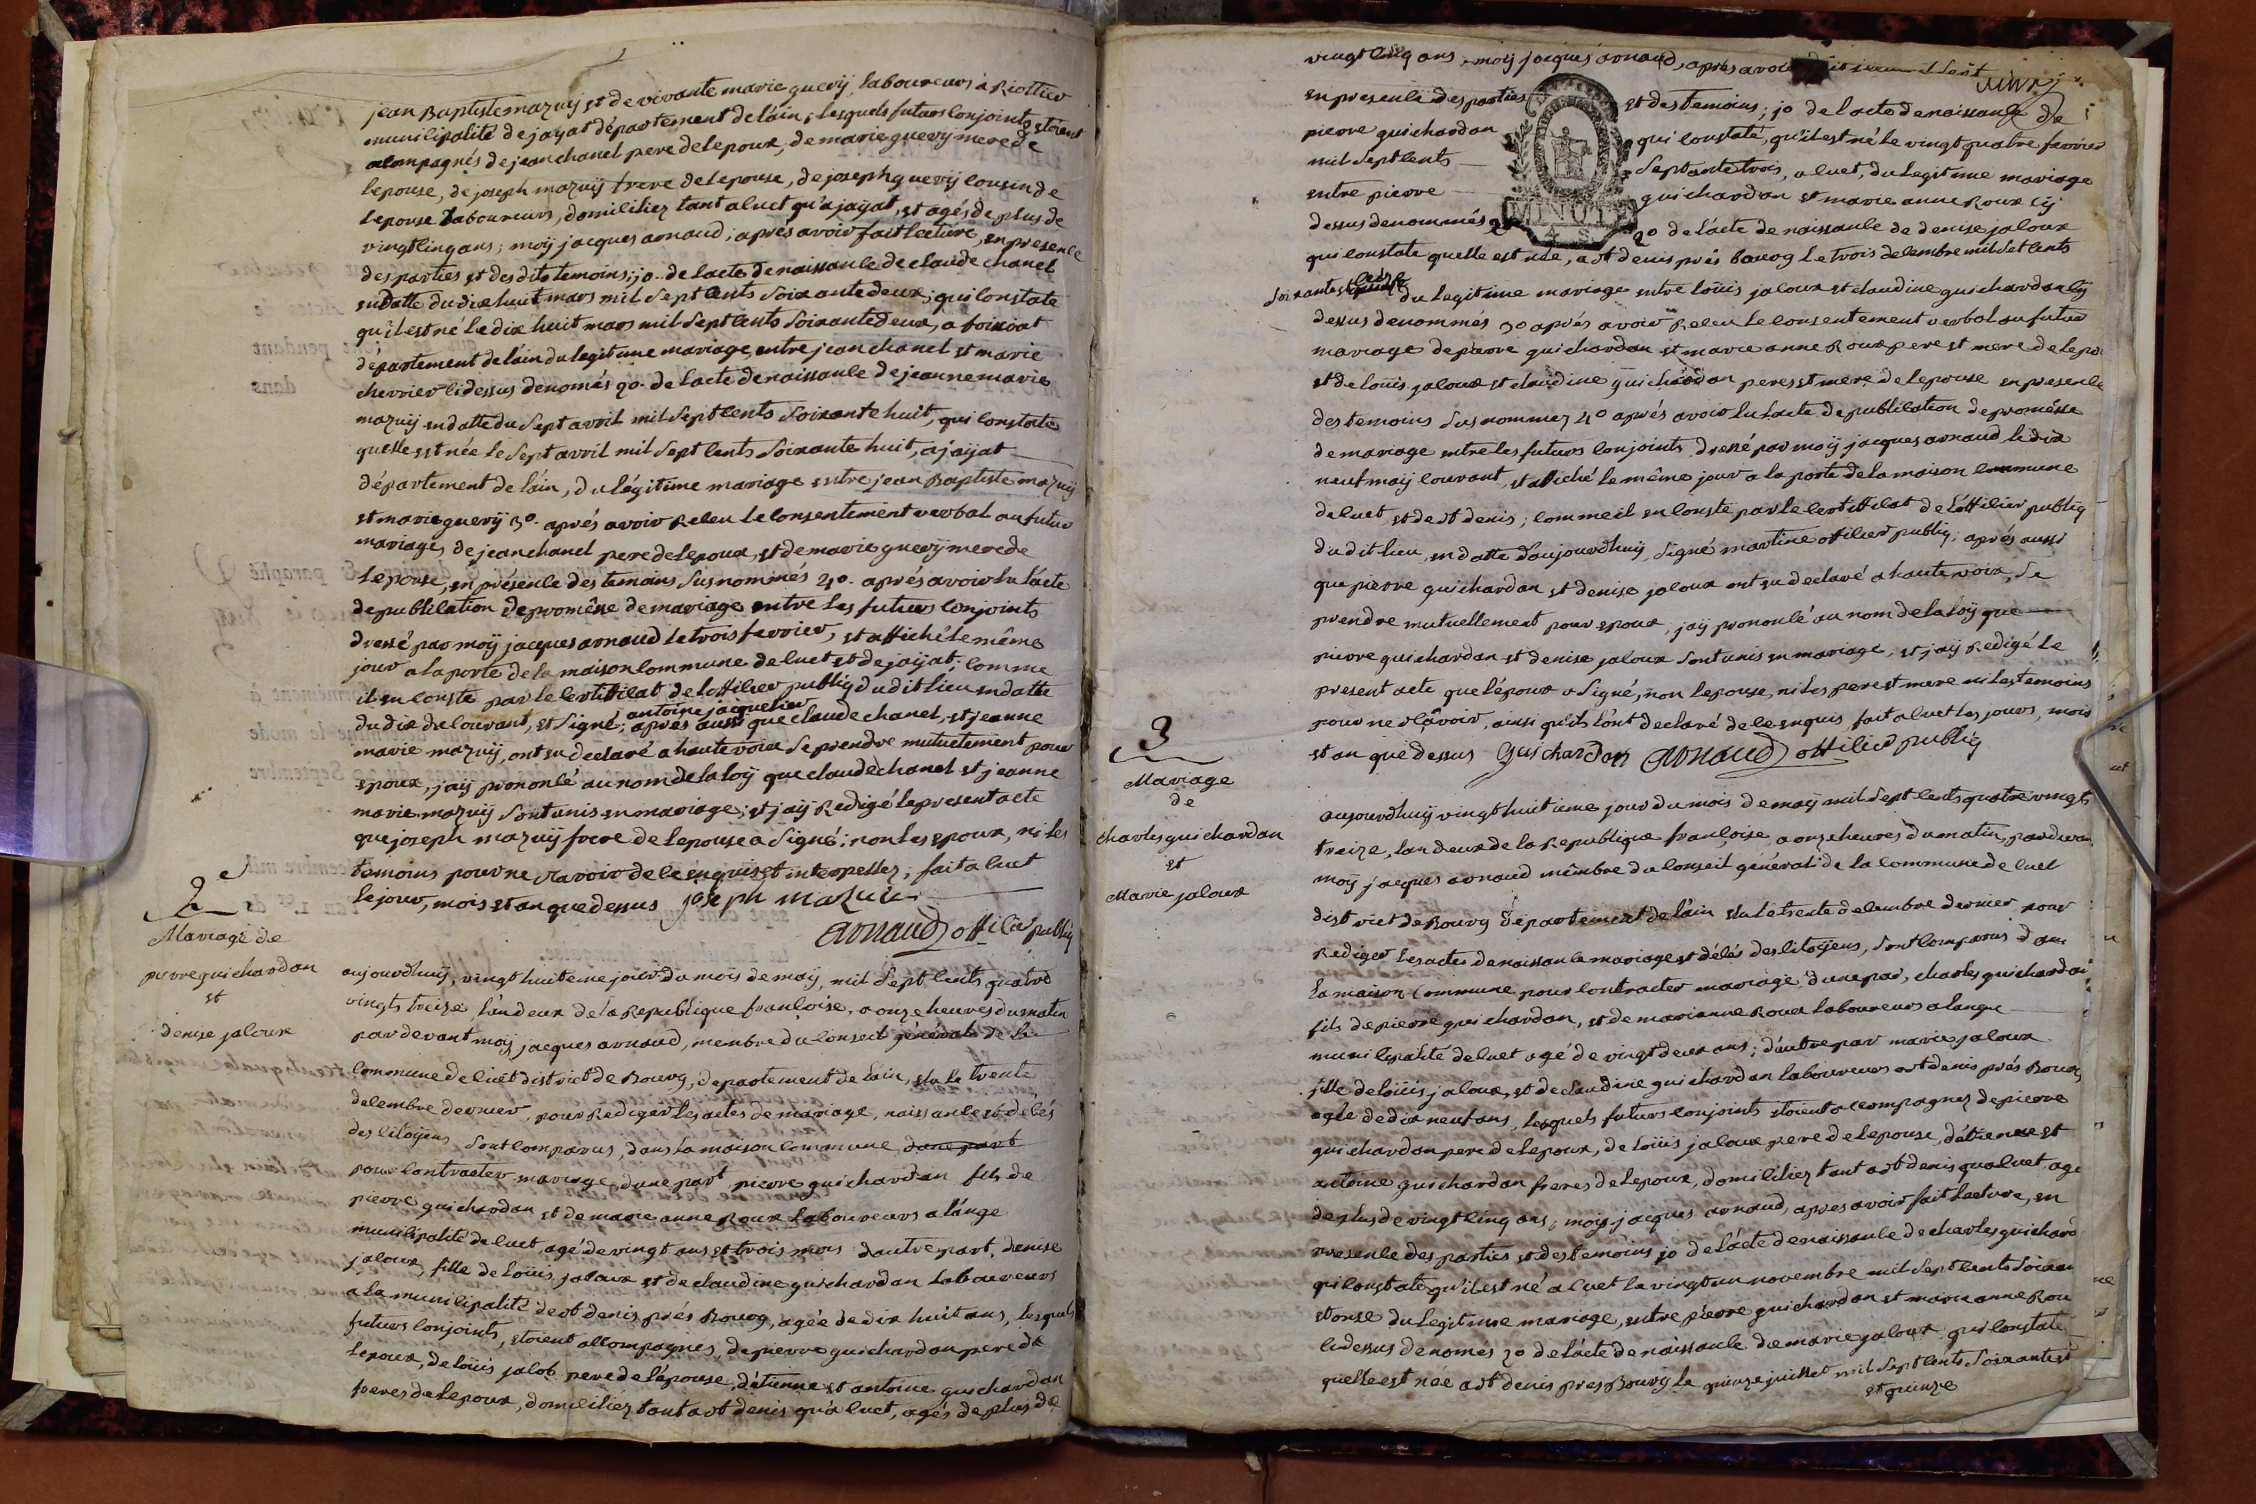 jean Baptiste mazuÿ et de vivante marie guerÿ laboureurs a Riottier
municipalité de jayat département de láin, lesquels futurs conjoints etoient
acompagnés de jean chanel pere de lepoux, de marie guerÿ mere de
lepouse, de joseph mazuÿ frere de lepouse, de joseph guerÿ cousin de
lepouse laboureurs, domiciliez tant a cuet qu'a jaÿat, et agés de plus de
vingt cinq ans; moÿ jacques arnaud, aprés avoir fait lecture, en presence
des parties et des dits temoins; 1o. de lacte de naissance de claude chanel
en datte du dix huit mars mil sept cents soixante deux; qui constate
qu'il est né le dix huit mars mil sept cents soixante deux, a foissiat
département de láin du legitime mariage entre jean chanel et marie
chevrier ci dessus denomés 2o. de lacte de naissance de jeanne marie
mazuÿ en datte du sept avril mil sept cents soixante huit, qui constate
quelle est née le sept avril mil sept cents soixante huit, a jaÿat
département de láin, du légitime mariage entre jean Baptiste mazuÿ
et marie guerÿ 3o. aprés avoir Receu le consentement verbal au futur
mariage, de jean chanel pere de lepoux, et de marie guerÿ mere de
lepouse, en présence des temoins susnommés 4o. aprés avoir lu lácte
de publication de promésse de mariage entre les futurs conjoints
dressé par moÿ jacques arnaud le trois fevrier, et affiché le même
jour a la porte de la maison commune de cuet et de jaÿat; comme
il en conste par le certificat de lofficier publiq du dit lieu en datte
du dix du courant, et signé; antoine jacquelier aprés aussi que claude chanel, et jeanne
marie mazuÿ, ont eu declaré a haute voix se prendre mutuelement pour
epoux, jaÿ prononcé au nom de la loÿ que claude chanel et jeanne
marie mazuÿ sont unis en mariage; et jaÿ Redigé le present acte
que joseph mazuÿ frere de lepouse a signé; non les epoux, ni les
temoins pour ne savoir de ce enquis et interpellez; fait a cuet
le jour, mois et an que dessus joseph mazuie
arnaud officier publiq
2
Mariage de
pierre guichardan
et
denise jaloux
aujourdhuÿ, vingt huiteme jour du mois de maÿ, mil sept cents quatre
vingts treize, lán deux de la Republique francoise, a onze heures du matin
pardevant moÿ jacques arnaud, membre du conseil général de la
commune de cuet district de Bourg, departement de lain, elu le trente
decembre dernier, pour Rediger les actes de mariage, naissance et décés
des citoÿens, sont comparus, dans la maison commune dune part
pour contracter mariage, dune part pierre guichardan fils de
pierre guichardan et de marie anne Roux laboureurs a lánge
municipalité de cuet, agé de vingt ans et trois mois dautre part, denise
jaloux, fille de loüis jaloux et de claudine guichardan laboureurs
a la municipalité de st denis prés Bourg, agée de dix huit ans, lesquels
futurs conjoints, etoient accompagnés, de pierre guichardan pere de
lepoux, de loüis jalob pere de lépouse, détienne et antoine guichardan
freres de lepoux, domiciliez tant a st denis qu'a cuet, agés de plus de
vingt cinq ans, moÿ jacques arnaud, aprés avoir
en presence des parties et des temoins; 1o de lacte de naissance de
pierre guichardan qui constaté, qu'il est né le vingt quatre fevrier
mil sept cents septante trois, a cuet, du legitime mariage
entre pierre guichardan et marie anne Roux cÿ
dessus denommés 2o de lácte de naissance de denise jaloux
MINUTE
4 S
qui constate quelle est née, a st denis prés bourg le trois decembre mil set cents
soixante et du legitime mariage entre loüis jaloux et claudine guichardan cÿ
dessus denommés 3o aprés avoir Receu le consentement verbal au futur
mariage de pierre guichardan et marie anne Roux pere et mere de lepo
et de loüis jaloux et claudine guichardan peres et mere de lepouse en presence
des temoins susnommez 4o aprés avoir lu lacte de publication de promésse
de mariage entre les futurs conjoints dressé par moÿ jacques arnaud le dix
neuf maÿ courant, et affiché le même jour a la porte de la maison commune
de cuet et de st denis; comme il en conste par le certificat de lófficier publiq
du dit lieu, en datte daujourdhuÿ, signé martine officier publiq, aprés aussi
que pierre guichardan et denise jaloux ont eu declaré a haute voix, se
prendre mutuellement pour epoux, jaÿ prononcé au nom de la loÿ que
pierre guichardan et denise jaloux sont unis en mariage, et jaÿ Redigé le
present acte que lépoux a signé, non lepouse, ni les pere et mere ni les temoins
pour ne sçavoir, ainsi qu'ils lónt declaré de ce enquis fait a cuet les jours, mois
et an que dessus Guichardan arnaud officier publiq
3
Mariage
de
charles guichardan
et
Marie jaloux
aujourdhuÿ vingt huitieme jour du mois de maÿ mil sept cents quatre vingts
treize, lan deux de la Republique françoise, a onze heures du matin, pardevan
moÿ jacques arnaud mêmbre du conseil général de la commune de cuet
district de Bourg département de láin elu le trente decembre dernier pour
Rediger les actes de naissance mariage et décés des citoÿens, sont comparus dans
la maison commune pour contracter mariage dune par, charles guichardan
fils de pierre guichardan, et de marianne Roux laboureurs a lange
municipalité de cuet agé de vingt deux ans; dáutre par marie jaloux
fille de loüis jaloux, et de claudine guichardan laboureurs a st denis prés Bourg
agée de dix neuf ans, lesquels futurs conjoints etoient accompagnez de pierre
guichardan pere de lepoux, de loüis jaloux pere de lepouse, détienne et
antoine guichardan freres de lepoux, domiciliez tant a st denis qua cuet, age
de plus de vingt cinq ans, moÿ jacques arnaud, apres avoir fait lecture, en
presence des parties et des temoins 1o de lácte de naissance de charles guichard
qui constate qu'il est né a cuet le vingt un novembre mil sept cents soixan
et onse du legitime mariage, entre piérre guichardan et marie anne Rou
ci dessus denomés 2o de lácte de naissance de marie jaloux, qui constate
quelle est née a st denis pres Bourg le quinze juillet mil sept cents soixante et
et quinze